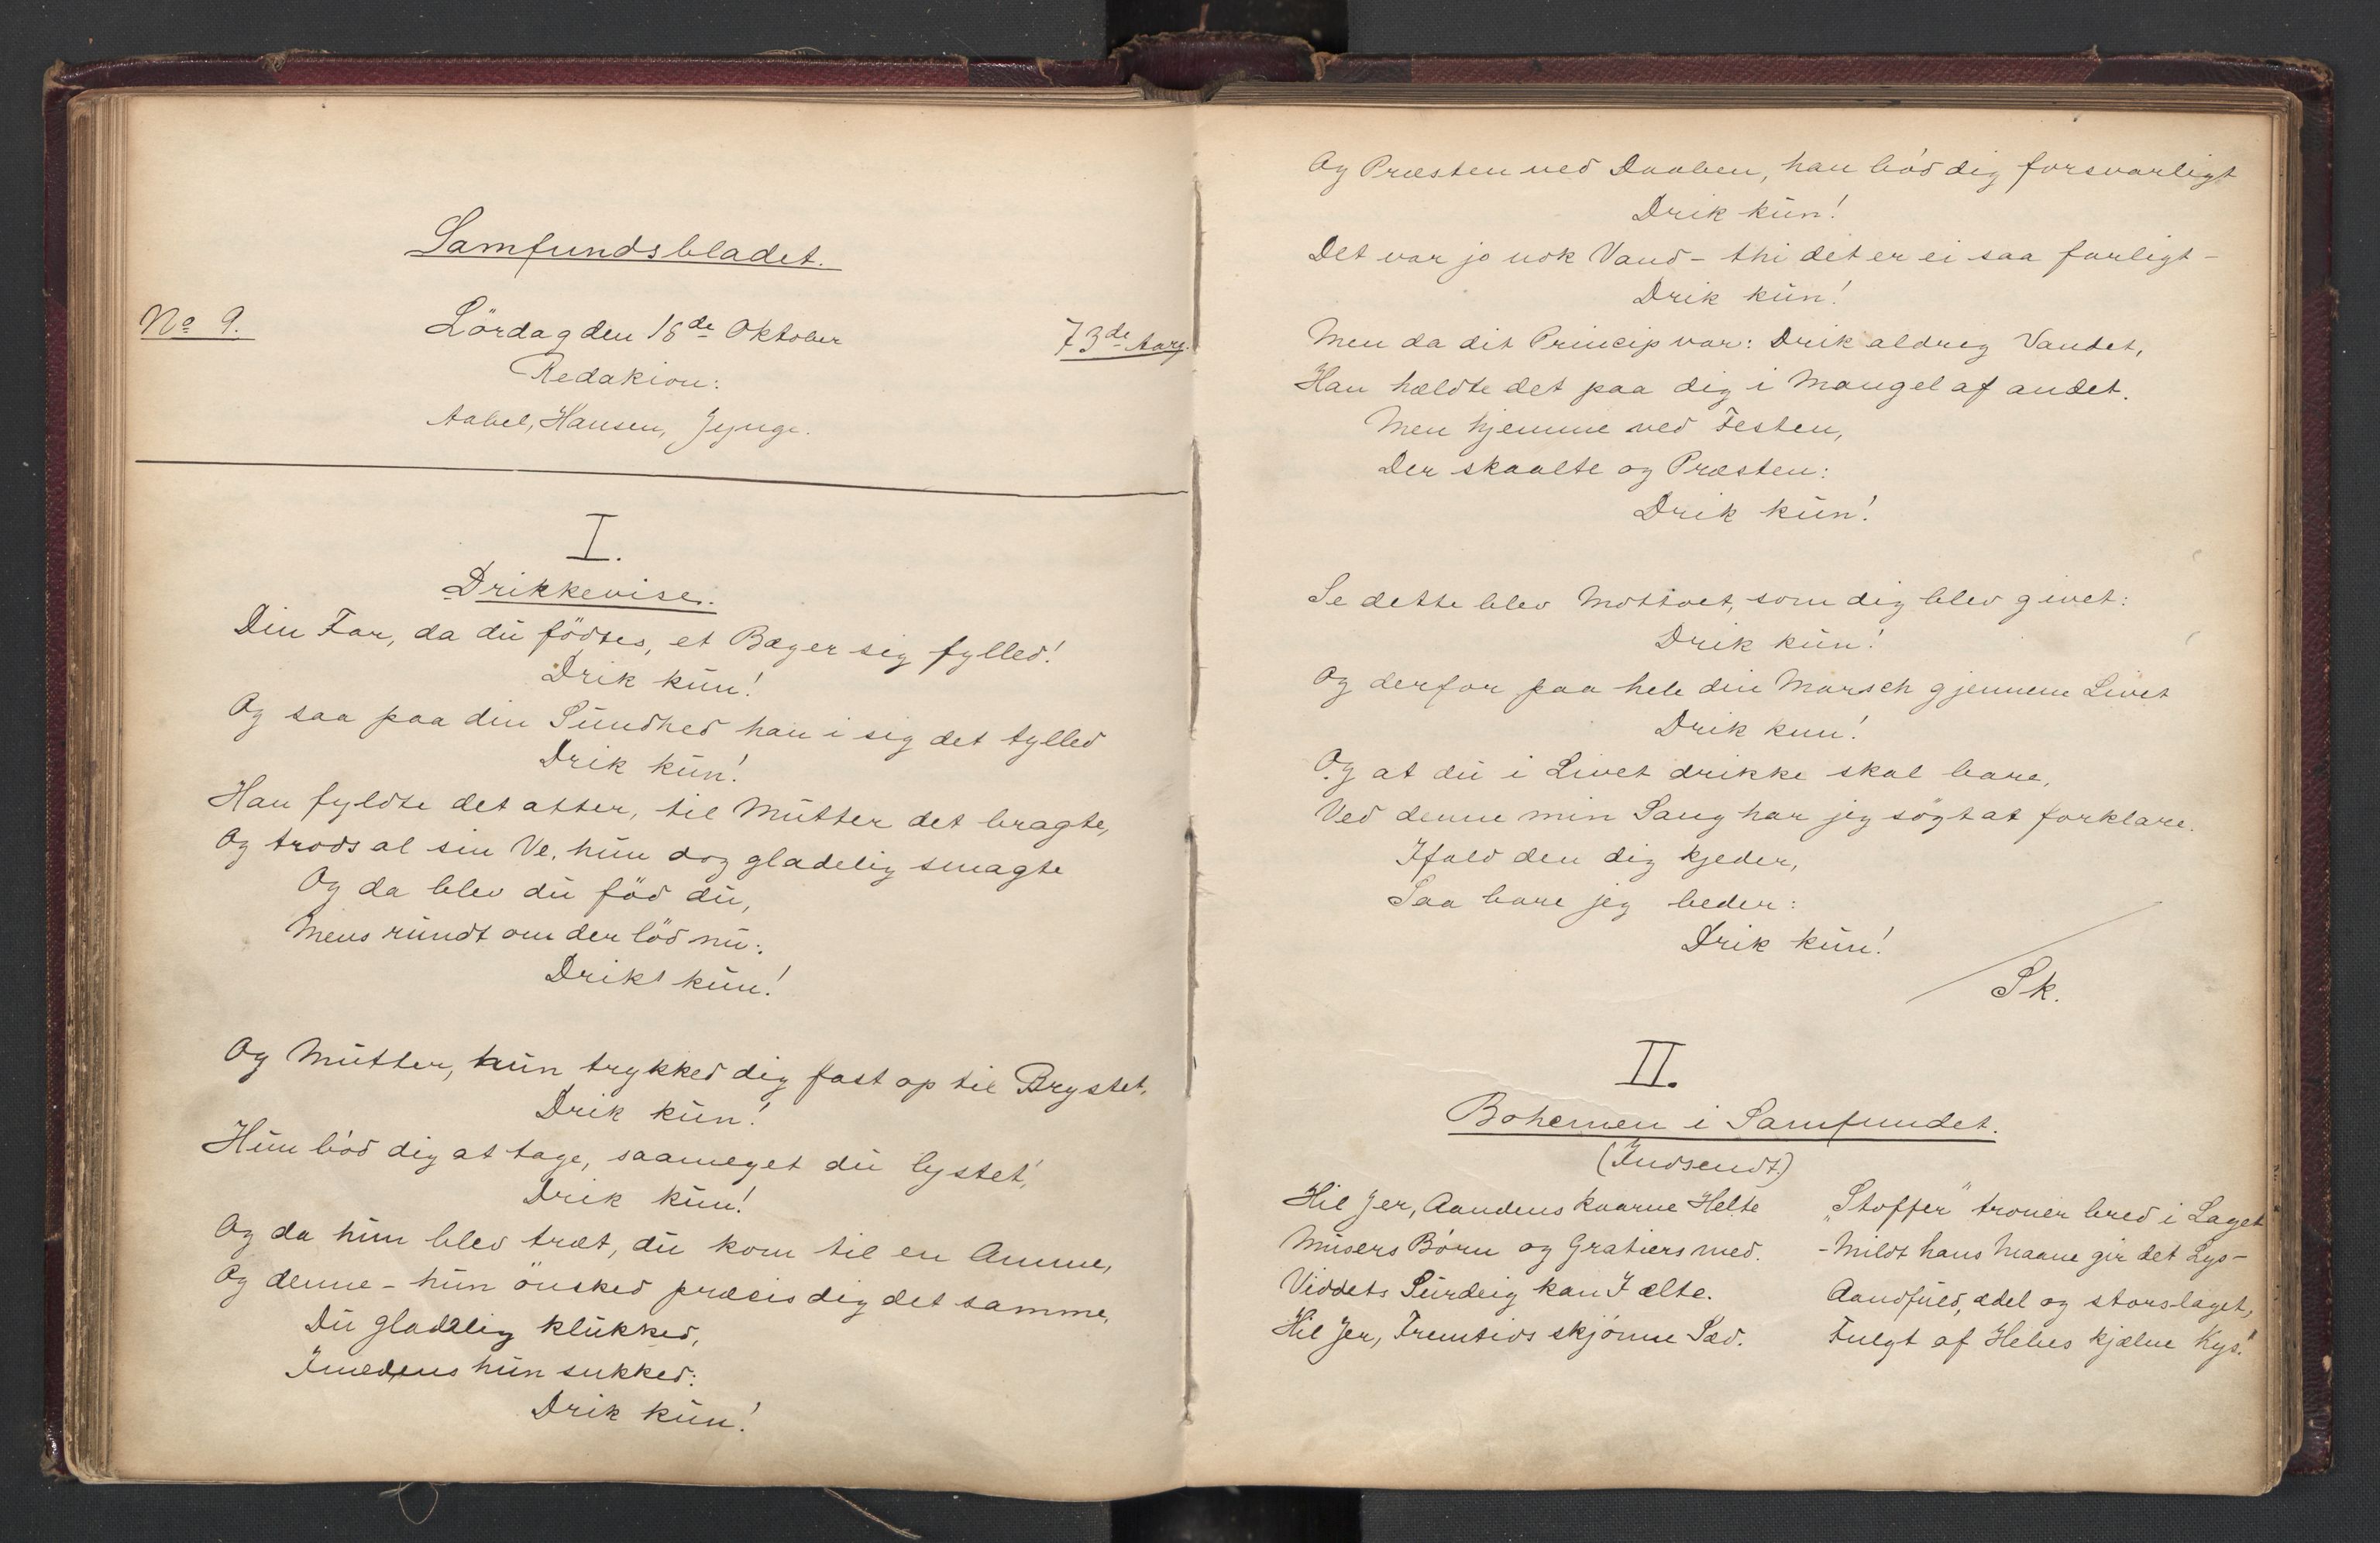 Samfundsbladet.
No 9.
Lördag den 18de Oktober
73de Aarg.
Redakion:
Aabel, Hansen, Jynge.
I.
Drikkevise.
Din Far, da du födtes, et Bæger sig fylled!
Drik kun!
Og saa paa din Sundhed han i sig det tylled
Drik kun!
Han fyldte det atter, til Mutter det bragte,
Og trods al sin Ve, hun dog gladelig smagte
Og da blev du föd du,
Mens rundt om der löd nu:
Drik kun!
Og Mutter, hun trykked dig fast op til Brystet,
Drik kun!
Hun bød dig at tage, saameget du lystet,
Drik kun!
Og da hun blev træt, du kom til en Amme,
Og denne - hun önsked præcis dig det samme,
Du gladelig klukked,
Imedens hun sukked:
Drik kun!
Og Præsten ved Daaben, han bød dig forsvarligt
Drik kun!
Det var jo nok Vand - thi det er ei saa farligt -
Drik kun!
Men da dit Princip var: Drik aldrig Vandet,
Han hældte det paa dig i Mangel af andet.
Men hjemme ved Festen,
Der skaalte og Præsten:
Drik kun!
Se dette blev Mottoet, som dig blev givet:
Drik kun!
Og derfor paa hele din Marsch gjennem Livet
Drik kun!
Og at du i Livet drikke skal bare,
Ved denne min Sang har jeg sögt at forklare.
Ifald den dig kjeder,
Saa bare jeg beder:
Drik kun!
Sk.
II.
Bohemen i Samfundet.
(Indsendt)
Hil Jer, Aandens kaarne Helte
Musers Børn og Gratiers med.
Viddets Surdeig kan I ælte.
Hil Jer, Fremtids skjønne Sæd.
„Stoffer" troner bred i Laget
- Mildt hans Maane gir det Lys -
Aandfuld, ædel og storslaget,
Fulgt af Hebes kjælne Kys!